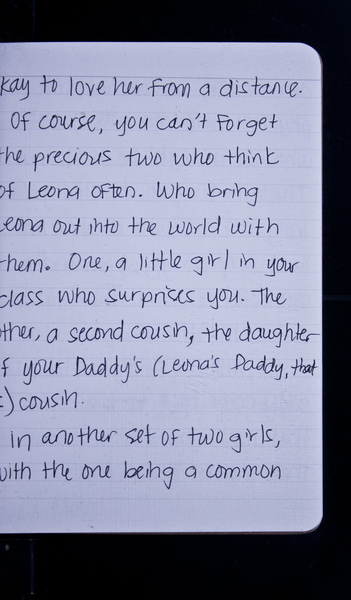 kay to love her from a distance.
Of course, you can't forget
the precious two who think
of Leona often. Who bring
Leona out into the world with
them. One, a little girl in your
class who surprises you. The
other, a second cousin, the daughter
of your Daddy's (Leona's Daddy, that
) cousin.
in another set of two girls,
with the one being a common